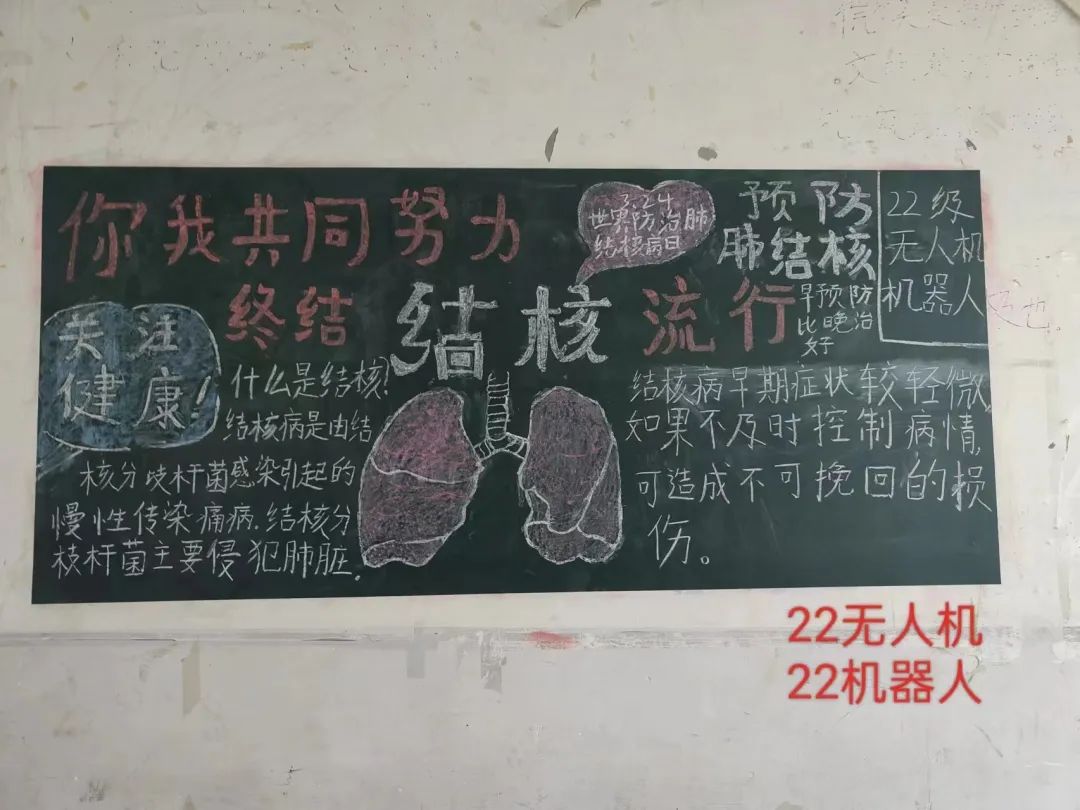 你我共同努力
终结 结核 流行
3.24
世界防治肺
结核病日
预防
肺结核
早预防
比晚治
好
22级
无人机
机器人
关注
健康!
什么是结核?
结核病是由结
核分歧杆菌感染引起的
慢性传染痛病.结核分
枝杆菌主要侵犯肺脏.
结核病早期症状较轻微,
如果不及时控制病情,
可造成不可挽回的损
伤。
22无人机
22机器人